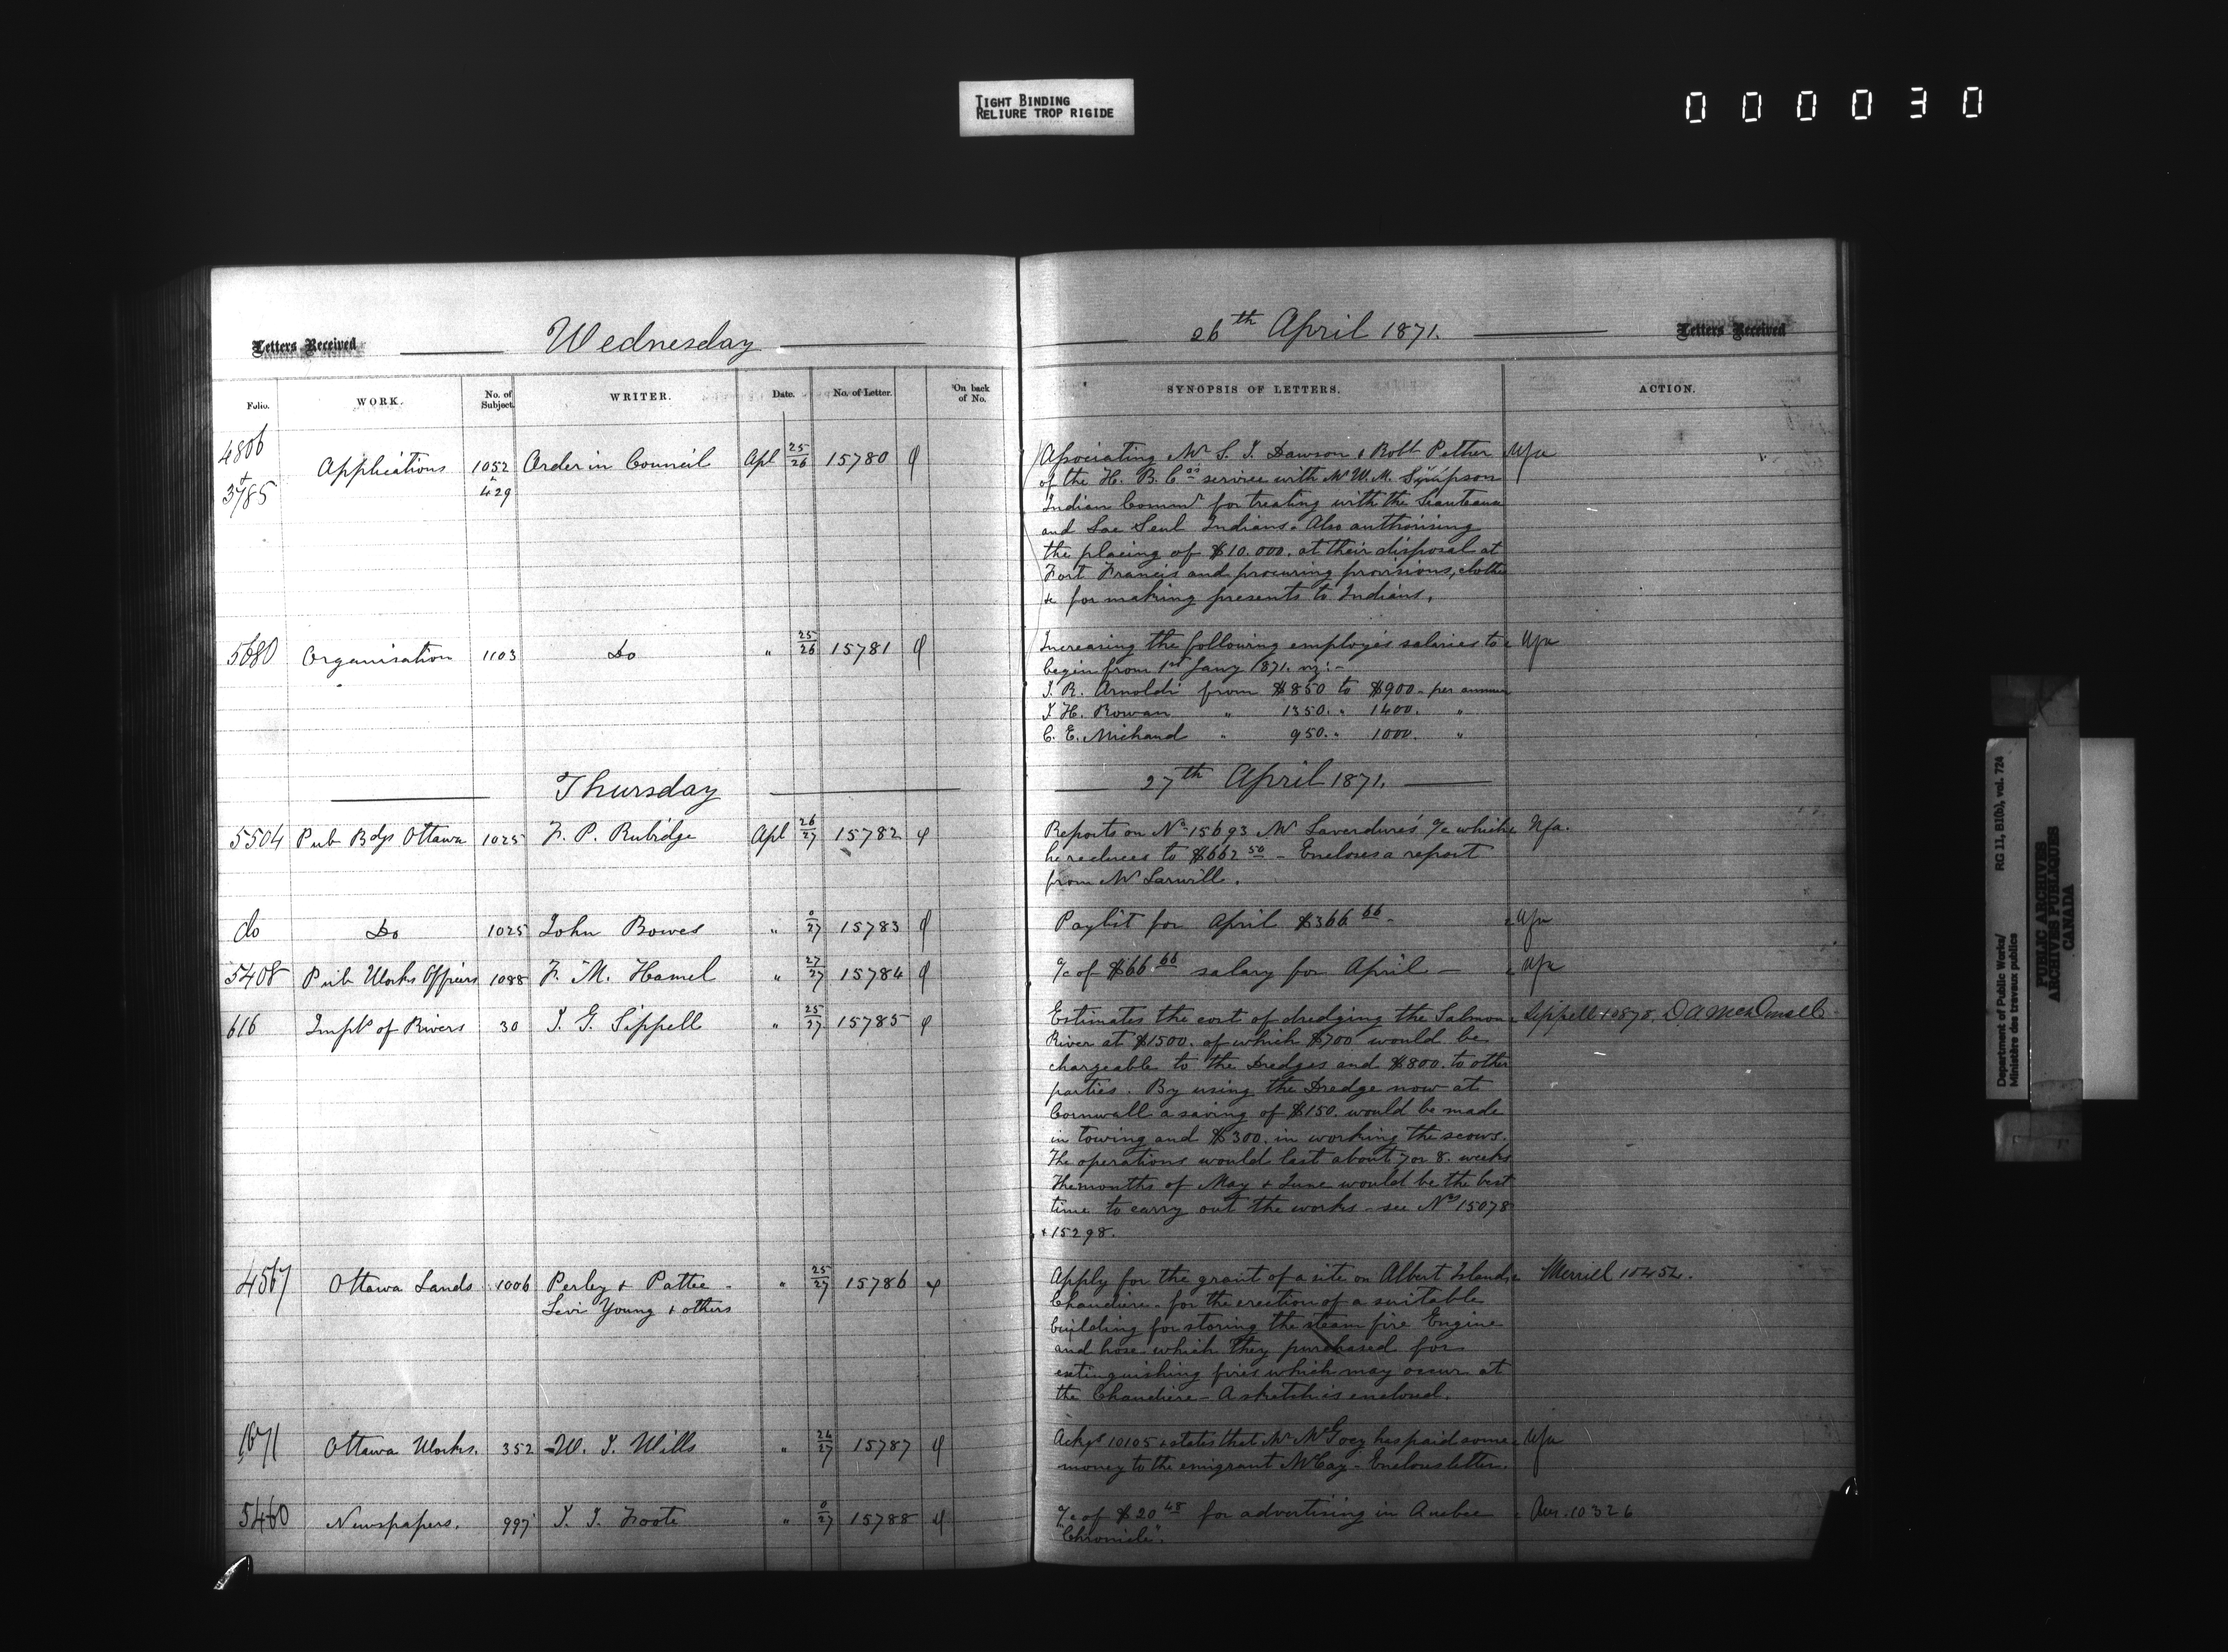 TIGHT BINDING
RELIURE TROP RIGIDE
000030
Letters Received
Wednesday
26th April 1871.
Letters Received
Folio. WORK. No. of Subject. WRITER. Date. No. of Letter. On back of No. SYNOPSIS OF LETTERS. ACTION.
4806 + 3785 Applications 1052 + 429 Order in Council Apl 25/26 15780
Associating Mr S. J. Dawson & Robt Pether
of the H. B. Cos service with Mr W. M. Simpson
Indian Commr for treating with the
and Lac Seul Indians. Also authorising
the placing of $10.000. at their disposal at
Fort Francis and procuring provisions, clothes
&c for making presents to Indians.
5080 Organisation 1103 Do " 25/26 15781
Increasing the following employés salaries to
begin from 1st Jany 1871. viz:-
J. R. Arnoldi from $850 to $900 - per annum
J. H. Rowan " 1350. " 1400. "
C. E. Michaud " 950. " 1000. "
Thursday
27th April 1871.
5504 Pub Bdgs Ottawa 1025 F. P. Rubidge Apl 26/27 15782
Reports on No 15693 Mr Laverdure's a/c which Nfa.
he reduces to $662 50 - Encloses a report
from Mr Larwill.
do Do 1025 John Bowes " 0/27 15783
Paylist for April $366 66 - Nfa
5408 Pub Works Officers 1088 F. M. Hamel " 27/27 15784
a/c of $66.66 salary for April - Nfa
616 Impts of Rivers 30 J. G. Sippell " 25/27 15785
Estimates the cost of dredging the Salmon Sippell
River at $1500. of which $700 would be
chargeable to the Dredges and $800. to other
parties. By using the Dredge now at
Cornwall a saving of $150. would be made
in towing and $300. in working the scows.
The operations would last about 7 or 8. weeks
The months of May & June would be the best
time to carry out the works - see Nos 15078
& 15298.
4567 Ottawa Lands 1006 Perley & Pattee - " 25/27 15786
Levi Young & others
Apply for the grant of a site on Albert Island Merrill 10454.
Chaudiere - for the erection of a suitable
building for storing the steam fire Engine
and hose which they purchased for
extinguishing fires which may occur at
the Chaudiere - A sketch is enclosed.
1671 Ottawa Works. 352 W. J. Wills " 26/27 15787
Ackgs 10105 & states that Mr McGoey has paid some Nfa
money to the emigrant McCay - Encloses letter.
5460 Newspapers. 997 J. J. Foote " 0/27 15788
a/c of $20 48 for advertising in Quebec Ans. 10326
"Chronicle".
Department of Public Works/ RG 11, B1(b), vol. 724
Ministère des travaux publics
PUBLIC ARCHIVES
ARCHIVES PUBLIQUES
CANADA